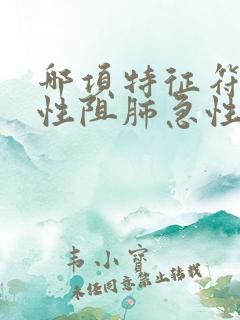 哪项特征符
性阻肺急性
韦小宝
未经同意禁止转载